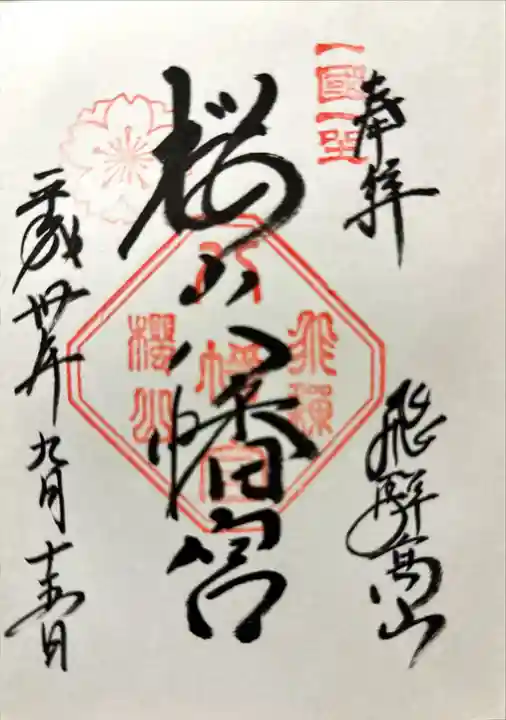 奉拝
飛騨高山
桜山八幡宮
飛騨
八幡宮
櫻山
平成卅年九月十五日